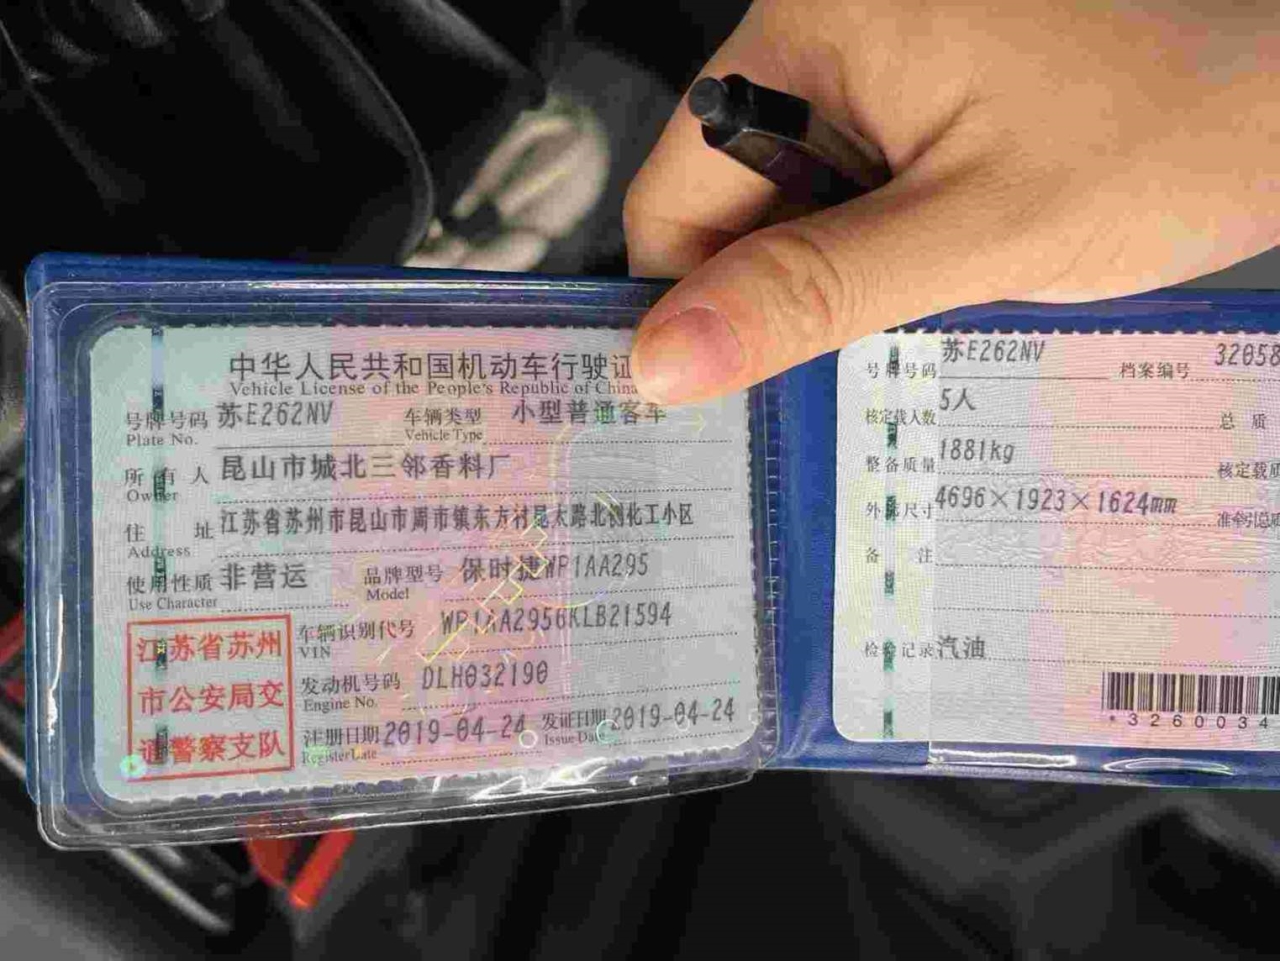 中华人民共和国机动车行驶证
Vehicle License of the People's Republic of China
号牌号码 苏E262NV 车辆类型 小型普通客车
Plate No. Vehicle Type
所有人 昆山市城北三邻香料厂
Owner
住址 江苏省苏州市昆山市周市镇东方村昆太路北侧化工小区
Address
使用性质 非营运 品牌型号 保时捷WP1AA295
Use Character Model
江苏省苏州
市公安局交
通警察支队
车辆识别代号 WP1AA2956KLB21594
VIN
发动机号码 DLH032190
Engine No.
注册日期 2019-04-24 发证日期 2019-04-24
Register Date Issue Date
号牌号码 苏E262NV 档案编号 32058
核定载人数 5人 总质
整备质量 1881kg 核定载质
外廓尺寸 4696×1923×1624mm 准牵引总
备注
检验记录 汽油
*3260034